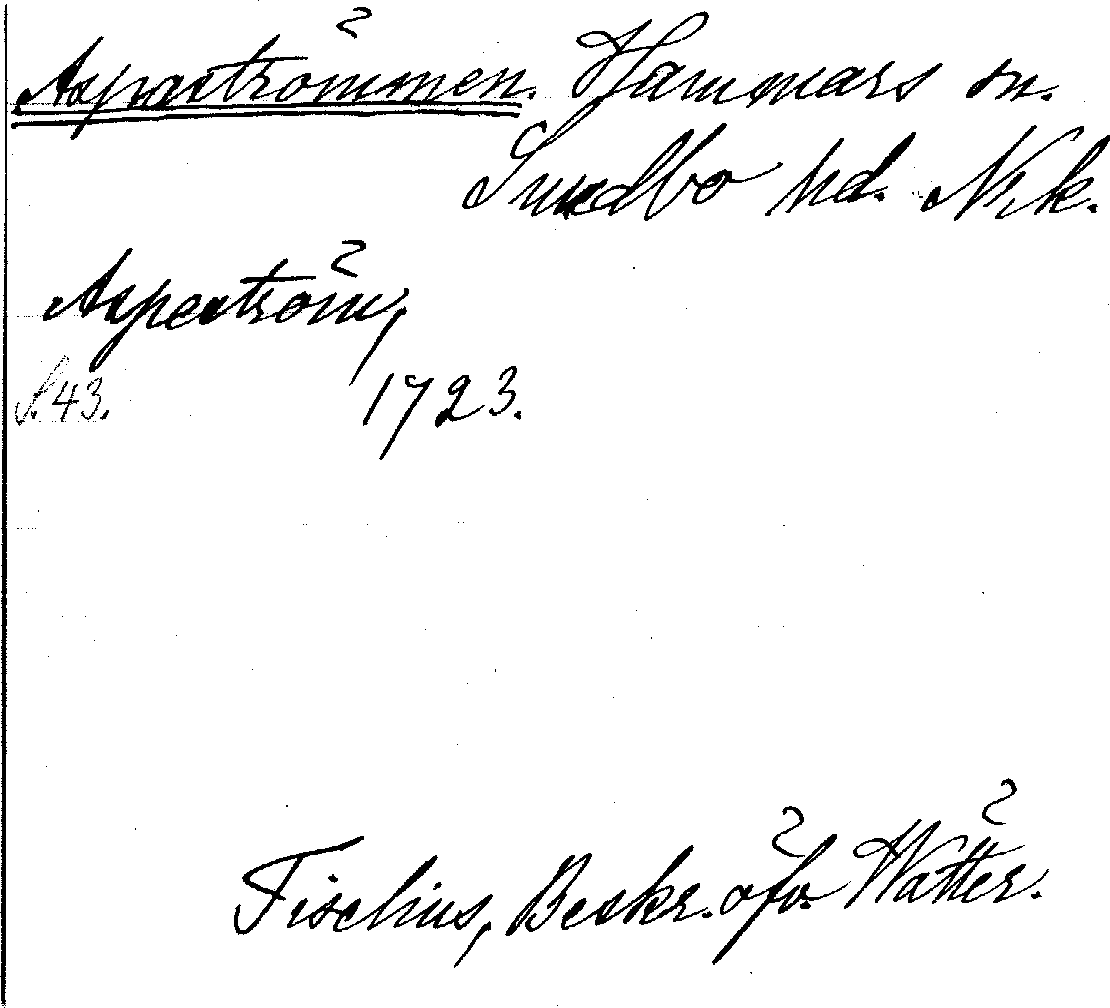 Aspaströmmen. Hammars sn.
Sundbo hd. Nrk.
Aspeström,
S. 43. 1723.
Tiselius, Beskr. öfv. Wätter.